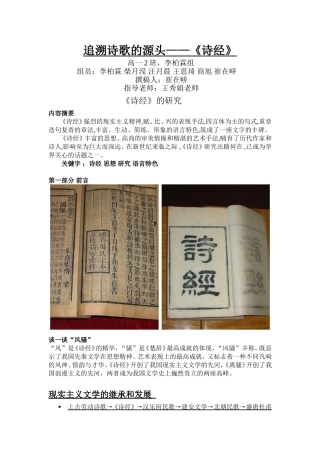 追溯诗歌的源头——《诗经》
高一2班、李柏霖组
组员：李柏霖 柴月滢 汪月晨 王思琦 商旭 崔在峤
撰稿人：崔在峤
指导老师：王秀娟老师
《诗经》的研究
内容摘要
《诗经》强烈的现实主义精神，赋、比、兴的表现手法，四言体为主的句式，重章
迭句复沓的章法，丰富、生动、简练、形象的语言特色，既成了一座文学的丰碑。
《诗经》丰富的思想、高尚的审美情操和精湛的艺术手法，对历代的文坛、作家和
诗人，影响至为巨大而深远。在新世纪来临之际，《诗经》研究出路何在，已成为学
界关心的话题之一。
关键字：诗经 思想 研究 语言特色
第一部分 前言
詩經
谈一谈“风骚”
“风”是《诗经》的精华，“骚”是《楚辞》最高成就的体现。“风骚”并称，既显
示了我国先秦文学在思想精神、艺术表现上的最高成就，又标志着一种不同凡响
的风神、情韵。《诗经》开创了我国现实主义文学的先河，《离骚》开创了我
国浪漫主义的先河，两者成为我国文学史上巍然耸立的两座高峰。
现实主义文学的继承和发展
• 上古劳动诗歌→《诗经》→汉乐府民歌→建安文学→北朝民歌→盛唐杜甫